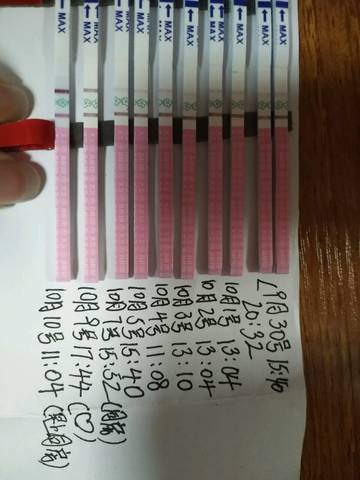 MAX
MAX
MAX
MAX
MAX
MAX
MAX
MAX
MAX
MAX
9月30号 15:40
20:32
10月1号 13:04
10月2号 13:04
10月3号 13:10
10月4号 11:08
10月5号 15:40
10月7号 15:52 (同房)
10月9号 17:44 (♡)
10月10号 11:04 (早上同房)